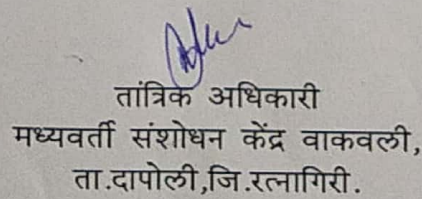 तांत्रिक अधिकारी
मध्यवर्ती संशोधन केंद्र वाकवली,
ता.दापोली,जि.रत्नागिरी.